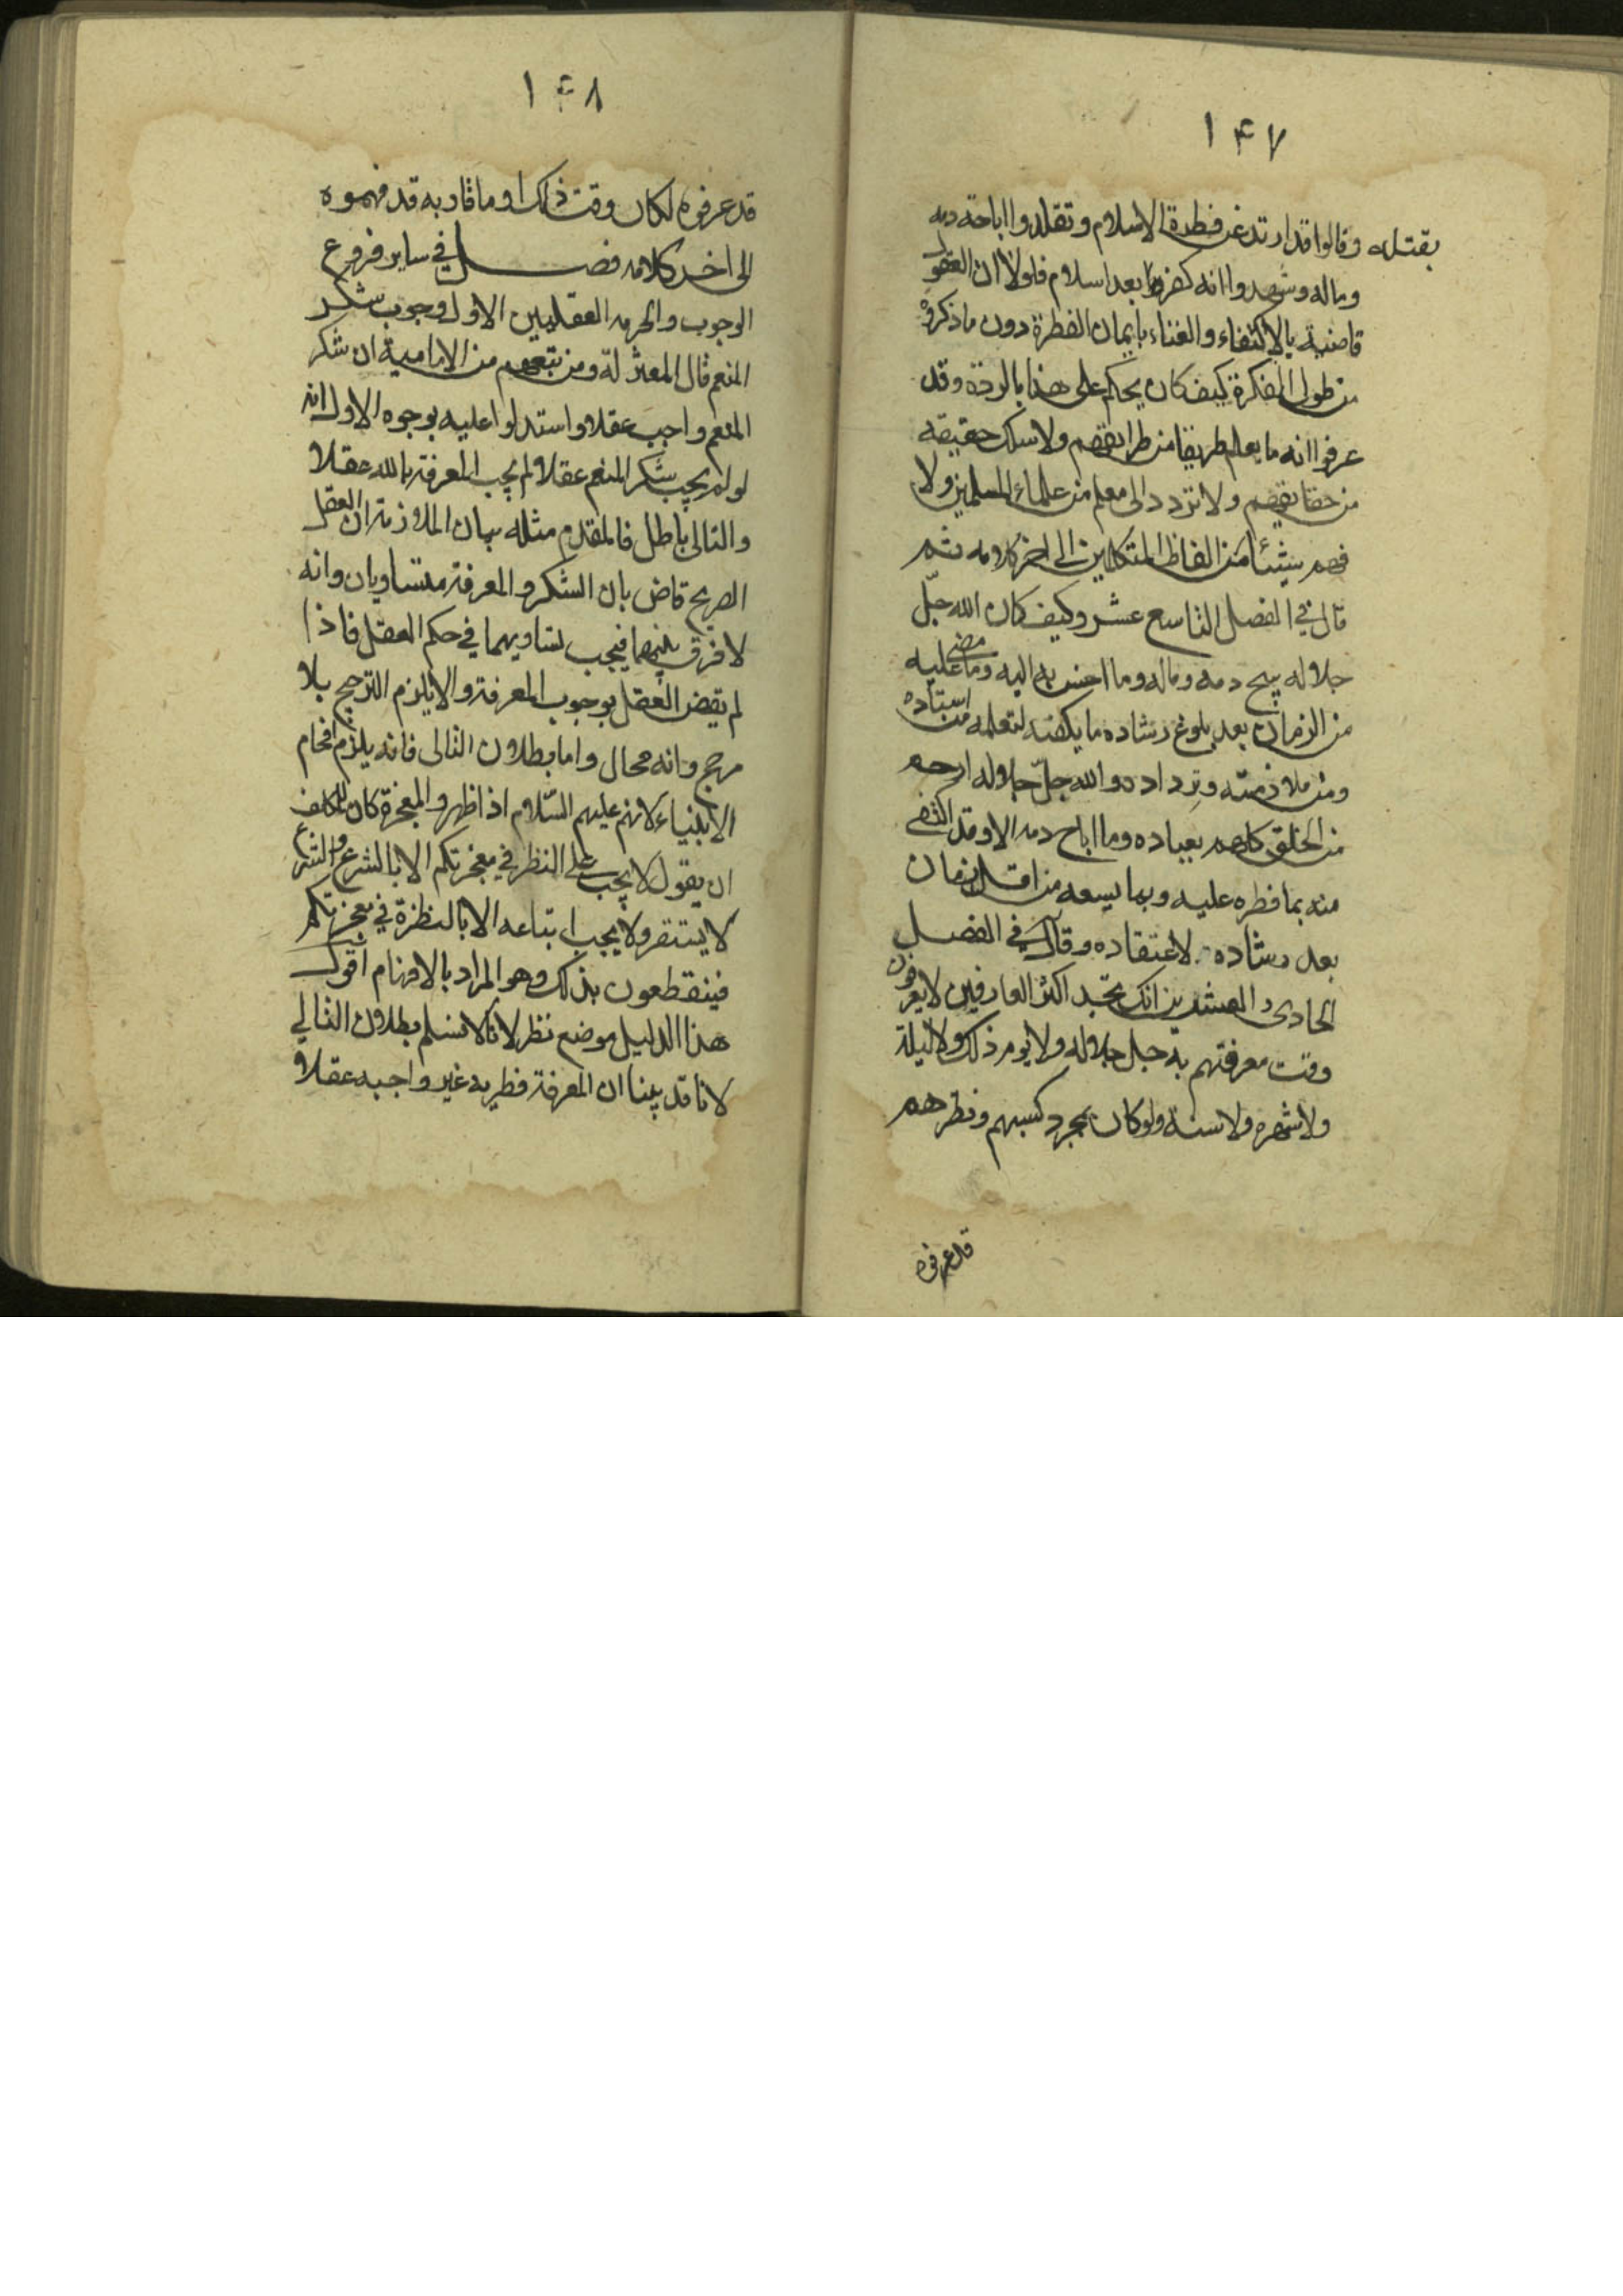 ١٤٧
بقتله وقالوا قد ارتد عن فطرة الاسلام وتقلدوا اباحة دمه
وماله وشهدوا انه كفر بعد اسلام فلولا ان العقول
قاضية بالاكتفاء والغناء بايمان الفطرة دون ما ذكروه
من طول الفكرة كيف كان يحكم على هذا بالردة وقد
عرفوا انه ما يعلم طريقا من طرايقهم ولا سلك حقيقه
من حقايقهم ولا تردد الى معلم من علماء المسلمين ولا
فهم شيئا من الفاظ المتكلمين الى اخر كلامه ثم
قال في الفصل التاسع عشر وكيف كان الله جلّ
جلاله يبيح دمه وماله وما احسن به اليه وما مضى عليه
من الزمان بعد بلوغ رشاده ما يكفيه لتعلمه من استاده
ومن ملازمته وترداده والله جلّ جلاله ارحم
من الخلق كلهم بعباده وما اباح دمه الا وقد اكتفى
منه بما فطره عليه وبما يسعه من اقل زمان
بعد رشاده لاعتقاده وقال في الفصل
الحادي والعشرين انك تجد اكثر العارفين لا يعرفون
وقت معرفتهم به جل جلاله ولا يوم ذلك ولا ليلة
ولا شهره ولا سنة ولو كان بمجرد كسبهم ونظرهم
قد عرفوه
١٤٨
قد عرفوه لكان وقت ذلك او ما قاربه قد فهموه
الى اخر كلامه فصل في ساير فروع
الوجوب والحرمه العقليين الاول وجوب شكر
المنعم قال المعتزلة ومن تبعهم من الامامية ان شكر
المنعم واجب عقلا واستدلوا عليه بوجوه الاول انه
لو لم يجب شكر المنعم عقلا لم يجب المعرفة بالله عقلا
والتالى باطل فالمقدم مثله بيان الملازمة ان العقل
الصريح قاض بان الشكر والمعرفة متساويان وانه
لا فرق بينهما فيجب تساويهما في حكم العقل فاذا
لم يقض العقل بوجوب المعرفة والا يلزم الترجيح بلا
مرجح وانه محال واما بطلان التالى فانه يلزم افحام
الانبياء لانهم عليهم السّلام اذا ظهروا المعجزة كان للمكلف
ان يقول لا يجب على النظر في معجزتكم الا بالشرع والشرع
لا يستقر ولا يجب اتباعه الا بالنظرة في معجزتكم
فينقطعون بذلك وهو المراد بالافهام اقول
هذا الدليل موضع نظر لانا لا نسلم بطلان التالي
لانا قد بينا ان المعرفة فطريه غير واجبه عقلا و